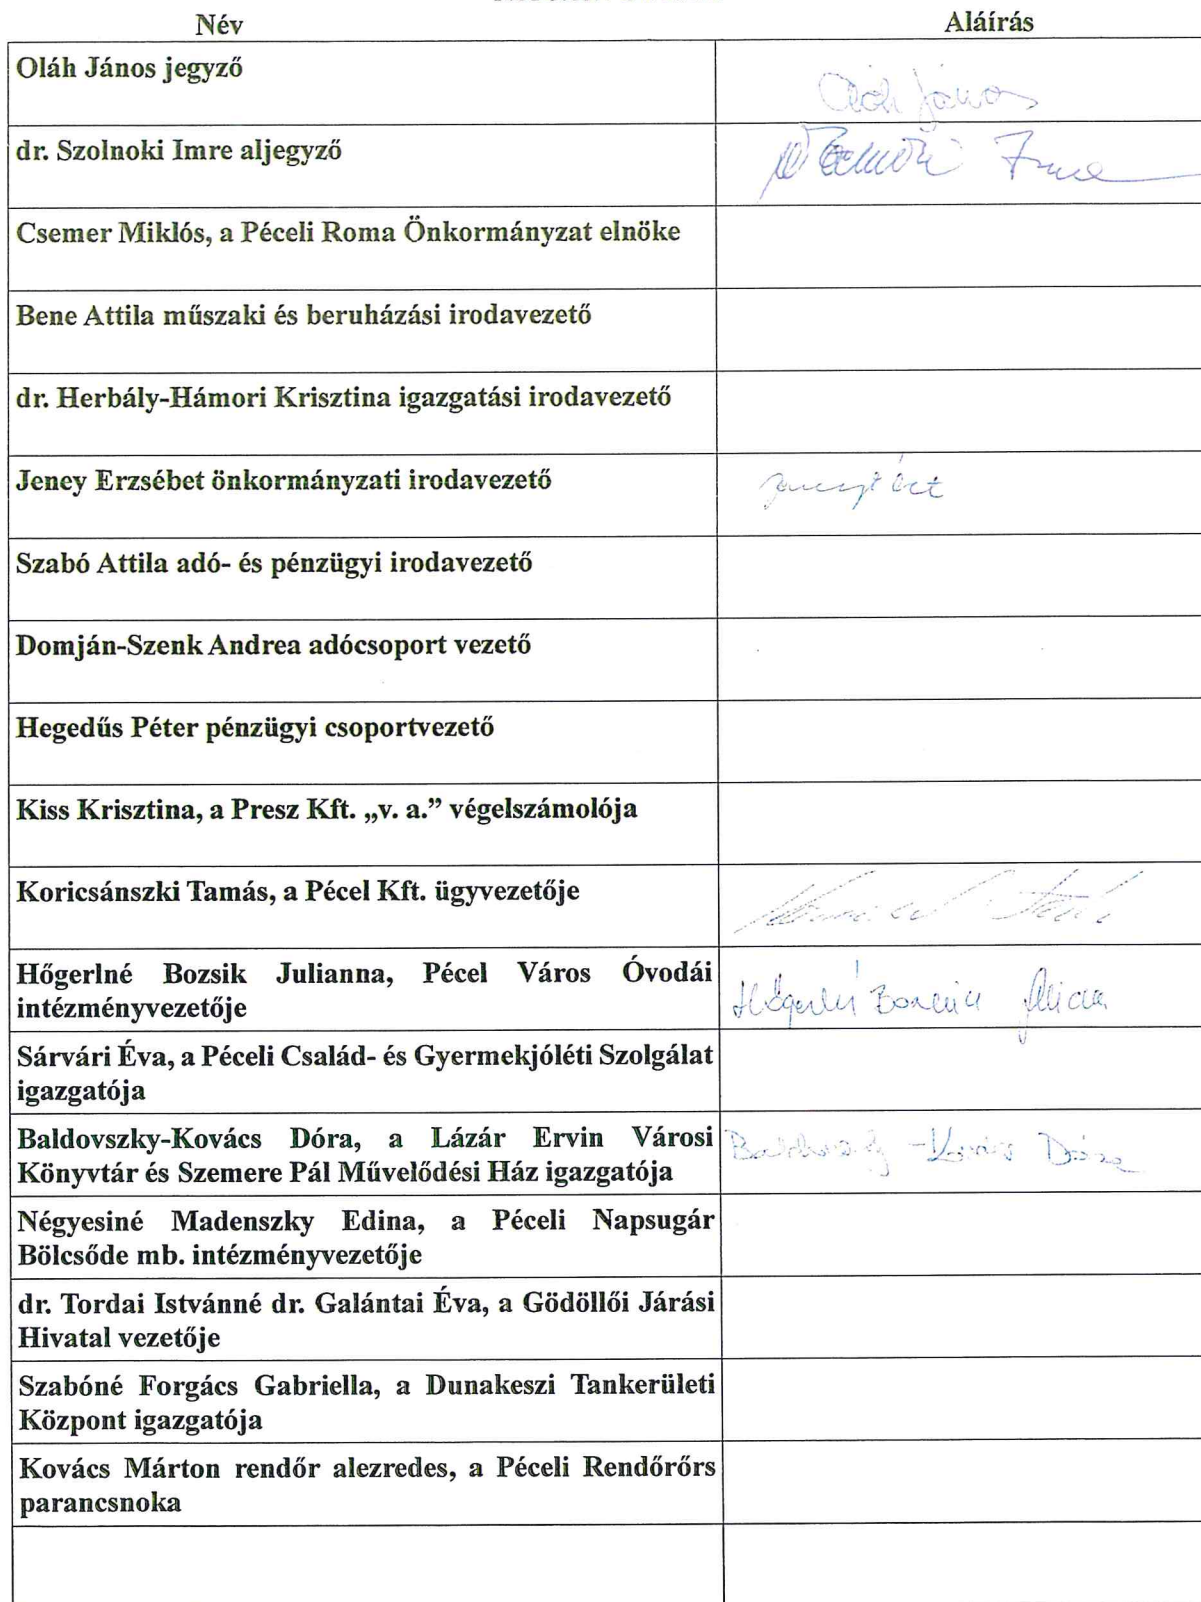 Név Aláírás
Oláh János jegyző
Oláh János
dr. Szolnoki Imre aljegyző
Imre
Csemer Miklós, a Péceli Roma Önkormányzat elnöke
Bene Attila műszaki és beruházási irodavezető
dr. Herbály-Hámori Krisztina igazgatási irodavezető
Jeney Erzsébet önkormányzati irodavezető
Szabó Attila adó- és pénzügyi irodavezető
Domján-Szenk Andrea adócsoport vezető
Hegedűs Péter pénzügyi csoportvezető
Kiss Krisztina, a Presz Kft. „v. a.” végelszámolója
Koricsánszki Tamás, a Pécel Kft. ügyvezetője
Hőgerlné Bozsik Julianna, Pécel Város Óvodái
intézményvezetője
Hőgerlné Bozsik
Sárvári Éva, a Péceli Család- és Gyermekjóléti Szolgálat
igazgatója
Baldovszky-Kovács Dóra, a Lázár Ervin Városi
Könyvtár és Szemere Pál Művelődési Ház igazgatója
Baldovszky-Kovács Dóra
Négyesiné Madenszky Edina, a Péceli Napsugár
Bölcsőde mb. intézményvezetője
dr. Tordai Istvánné dr. Galántai Éva, a Gödöllői Járási
Hivatal vezetője
Szabóné Forgács Gabriella, a Dunakeszi Tankerületi
Központ igazgatója
Kovács Márton rendőr alezredes, a Péceli Rendőrőrs
parancsnoka